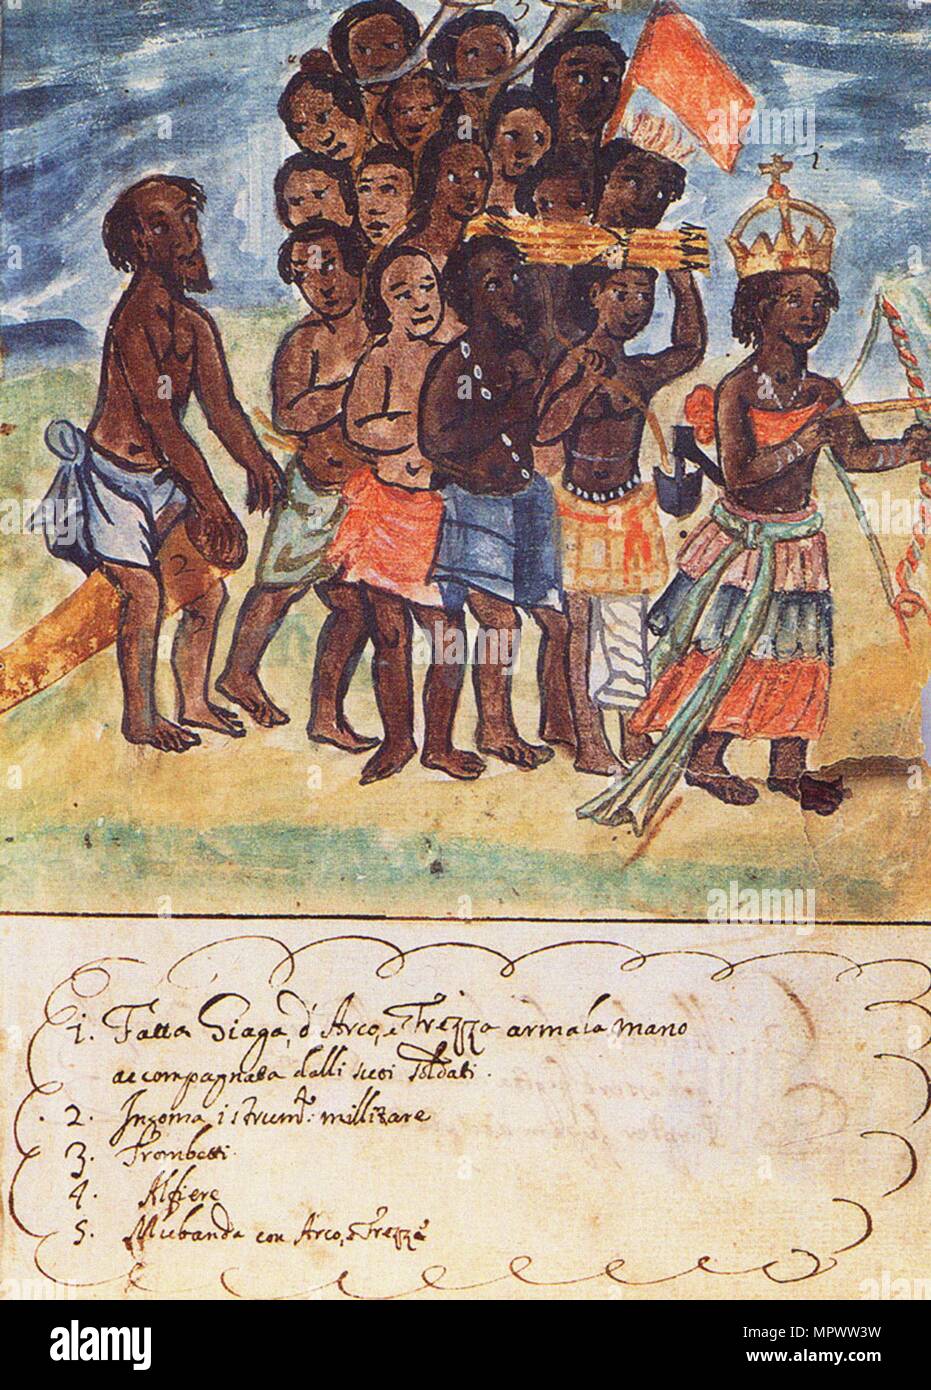 3
1.
2
1. Fatta Giaga, d'Arco, e Frezza armala mano
accompagnata dalli suoi soldati.
2. Ingoma istrumt: millitare
3. Trombetti
4. Alfiere
5. Mubanda con Arco, e Frezza
alamy
alamy stock photo
MPWW3W
www.alamy.com